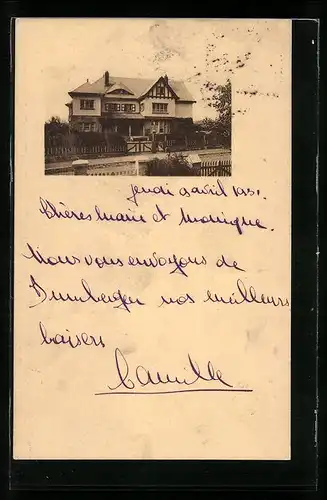 jeudi 9 avril 1931.
Chères Marie et Monique.
Nous vous envoyons de
Duinbergen nos meilleurs
baisers
Camille